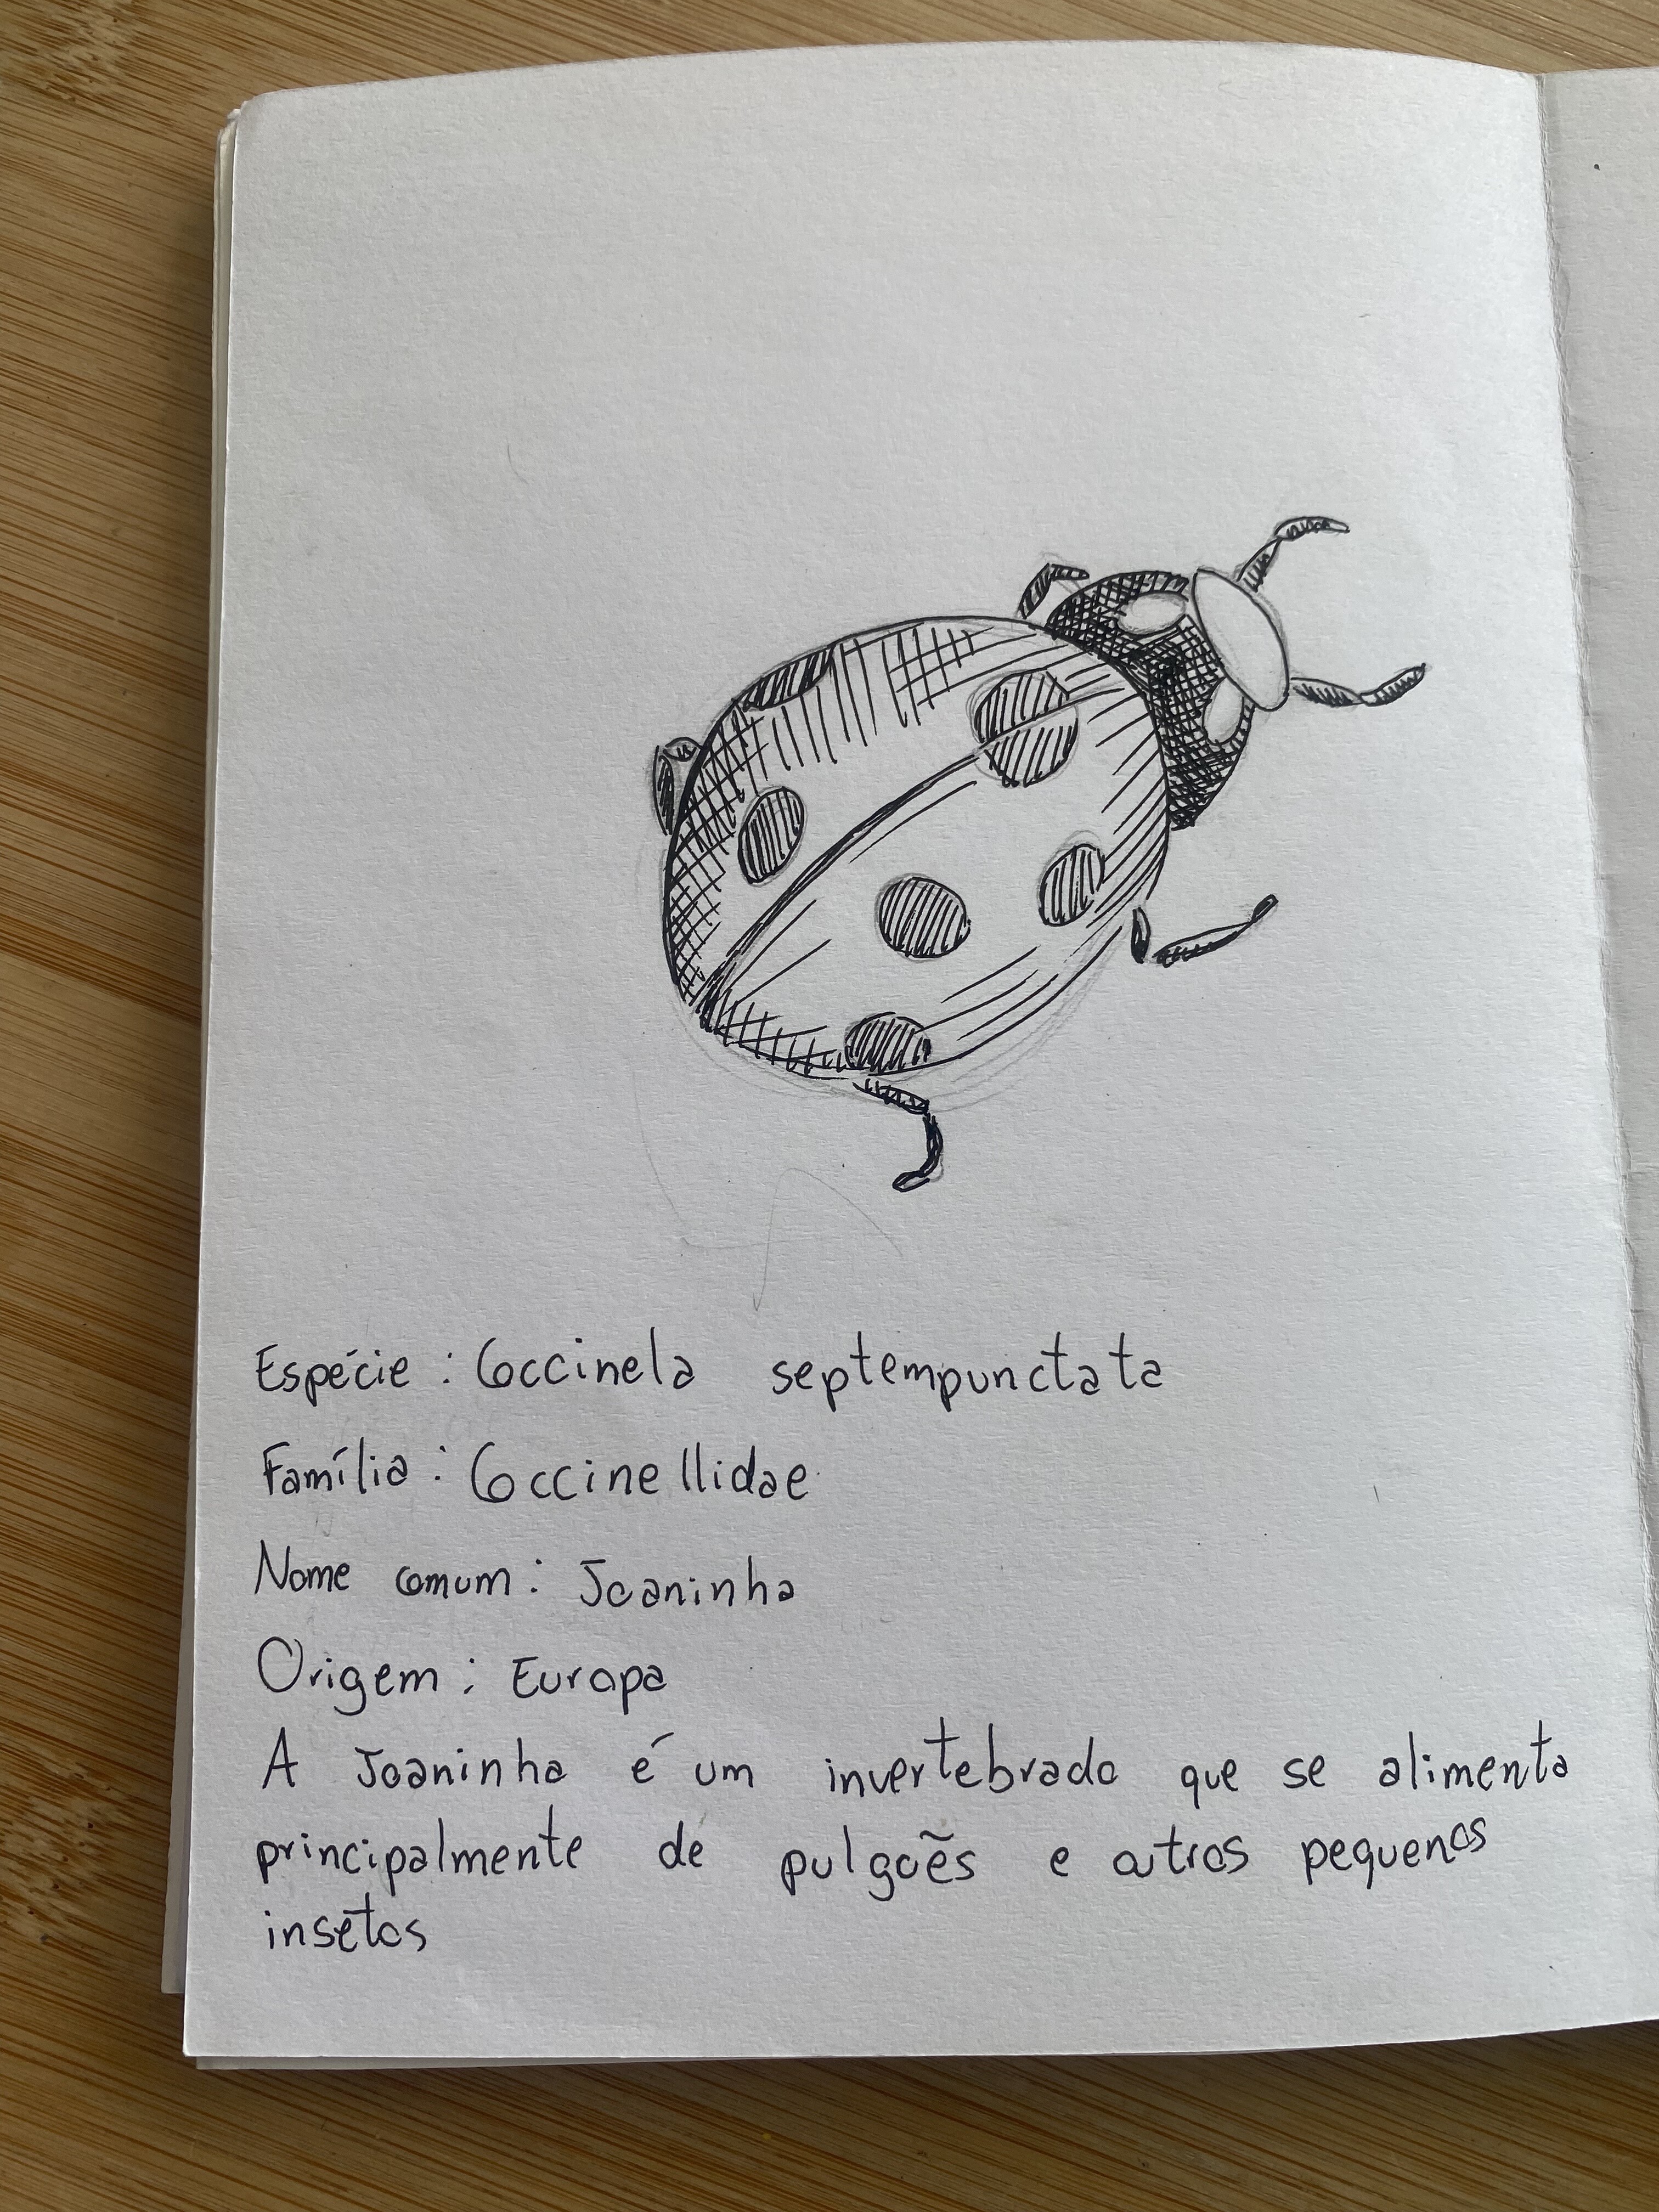 Espécie : Coccinela septempunctata
Família : Coccinellidae
Nome comum : Joaninha
Origem : Europa
A Joaninha é um invertebrado que se alimenta
principalmente de pulgoẽs e outros pequenos
insetos